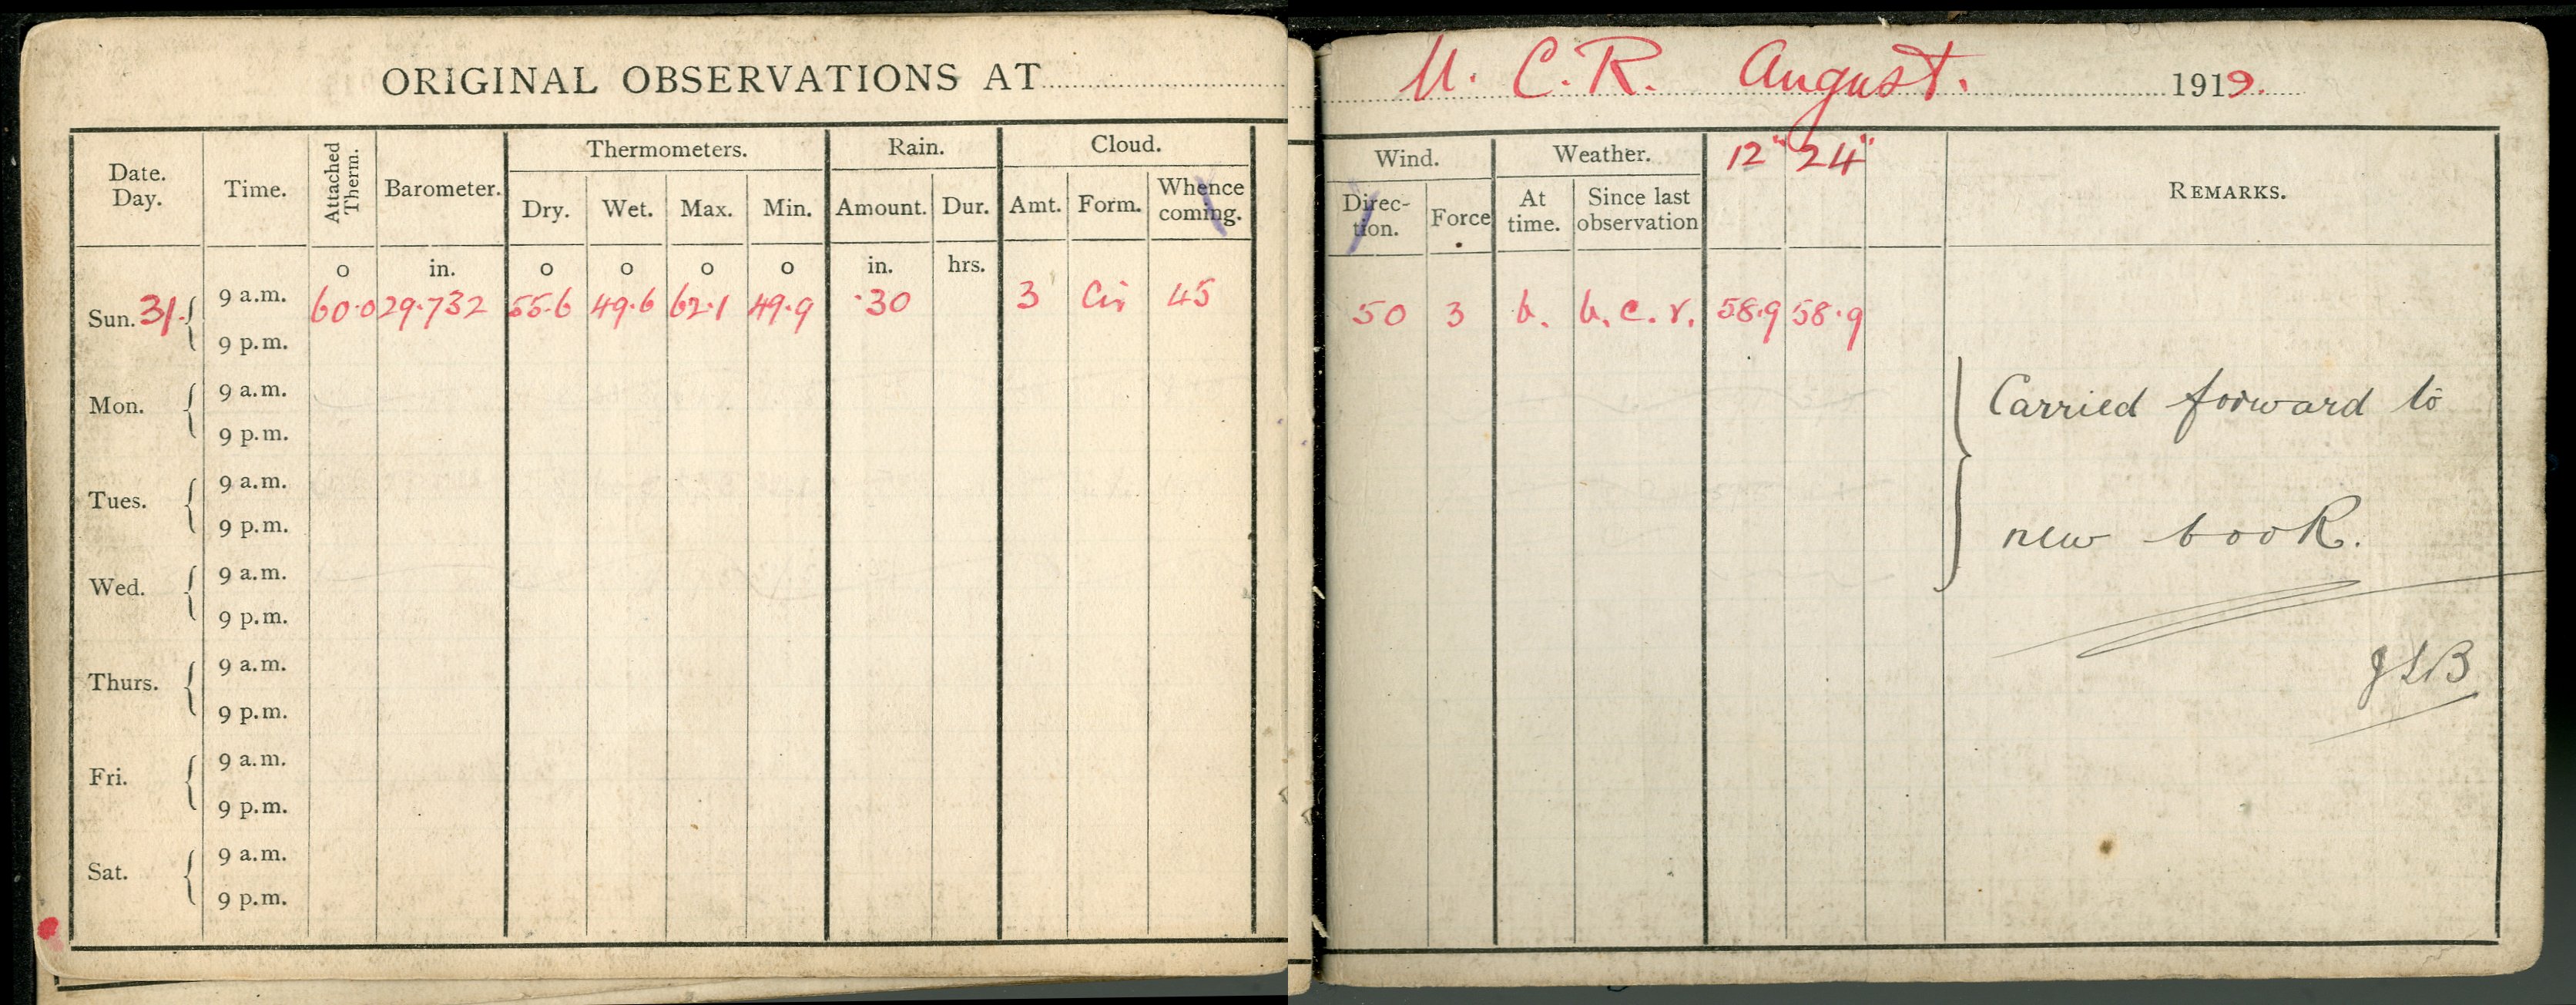 ORIGINAL OBSERVATIONS AT U. C. R. August. 1919.
Date. Day. Time. Attached Therm. Barometer. Thermometers. Rain. Cloud. Wind. Weather. 12" 24" REMARKS.
Dry. Wet. Max. Min. Amount. Dur. Amt. Form. Whence coming. Direc- tion. Force At time. Since last observation
o in. o o o o in. hrs.
Sun. 31. 9 a.m. 60.0 29.732 55.6 49.6 62.1 49.9 .30 3 Cir 45 50 3 b. b. c. r. 58.9 58.9
9 p.m.
Mon. 9 a.m.
9 p.m.
Carried forward to
Tues. 9 a.m.
9 p.m.
new book.
Wed. 9 a.m.
9 p.m.
Thurs. 9 a.m.
9 p.m.
JLB
Fri. 9 a.m.
9 p.m.
Sat. 9 a.m.
9 p.m.